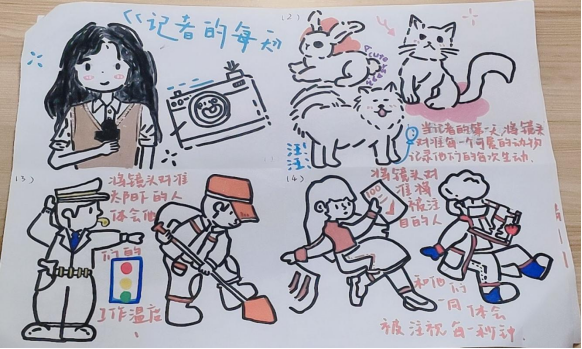 《记者的每天》
(2)
当记者的第一天，将镜头
对准每一个可晨的动物
记录他们的每次生动.
注
注
(3)
将镜头对准
太阳下的人
体会他
们的
工作温度
(4)
将镜头对
准被
被注
目的人
100
和他们
一同体会
被注视每一秒钟